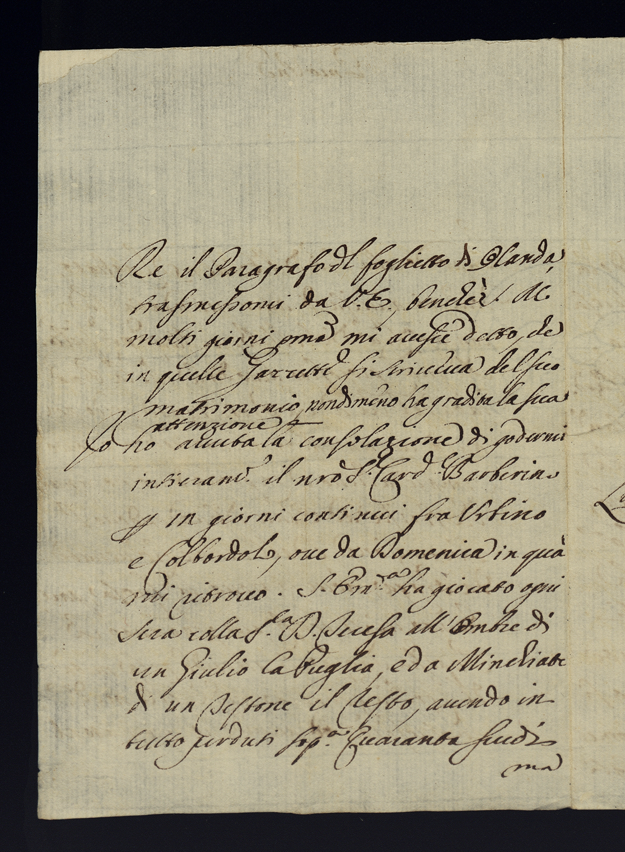 Re il Paragrafo dl foglietto di Olanda,
trasmessomi da V.E., benche
molti giorni pma mi avesse detto, che
in quelle Gazzette si scriveva del suo
matrimonio, nondimeno ha gradita la sua
attenzione
Io ho avuta la consolazione di godermi
intieram.te il nro S.r Card. Barberini
p in giorni continui fra Urbino
e Colbordolo, ove da Domenica in quà
mi ritrovo. S. Em.za ha giocato ogni
sera colla S.ra D. Teresa all'Ombre di
un Giulio la Puglia, ed a Minchiate
di un Testone il resto, avendo in
tutto perduti sop.a Quaranta scudi
ma